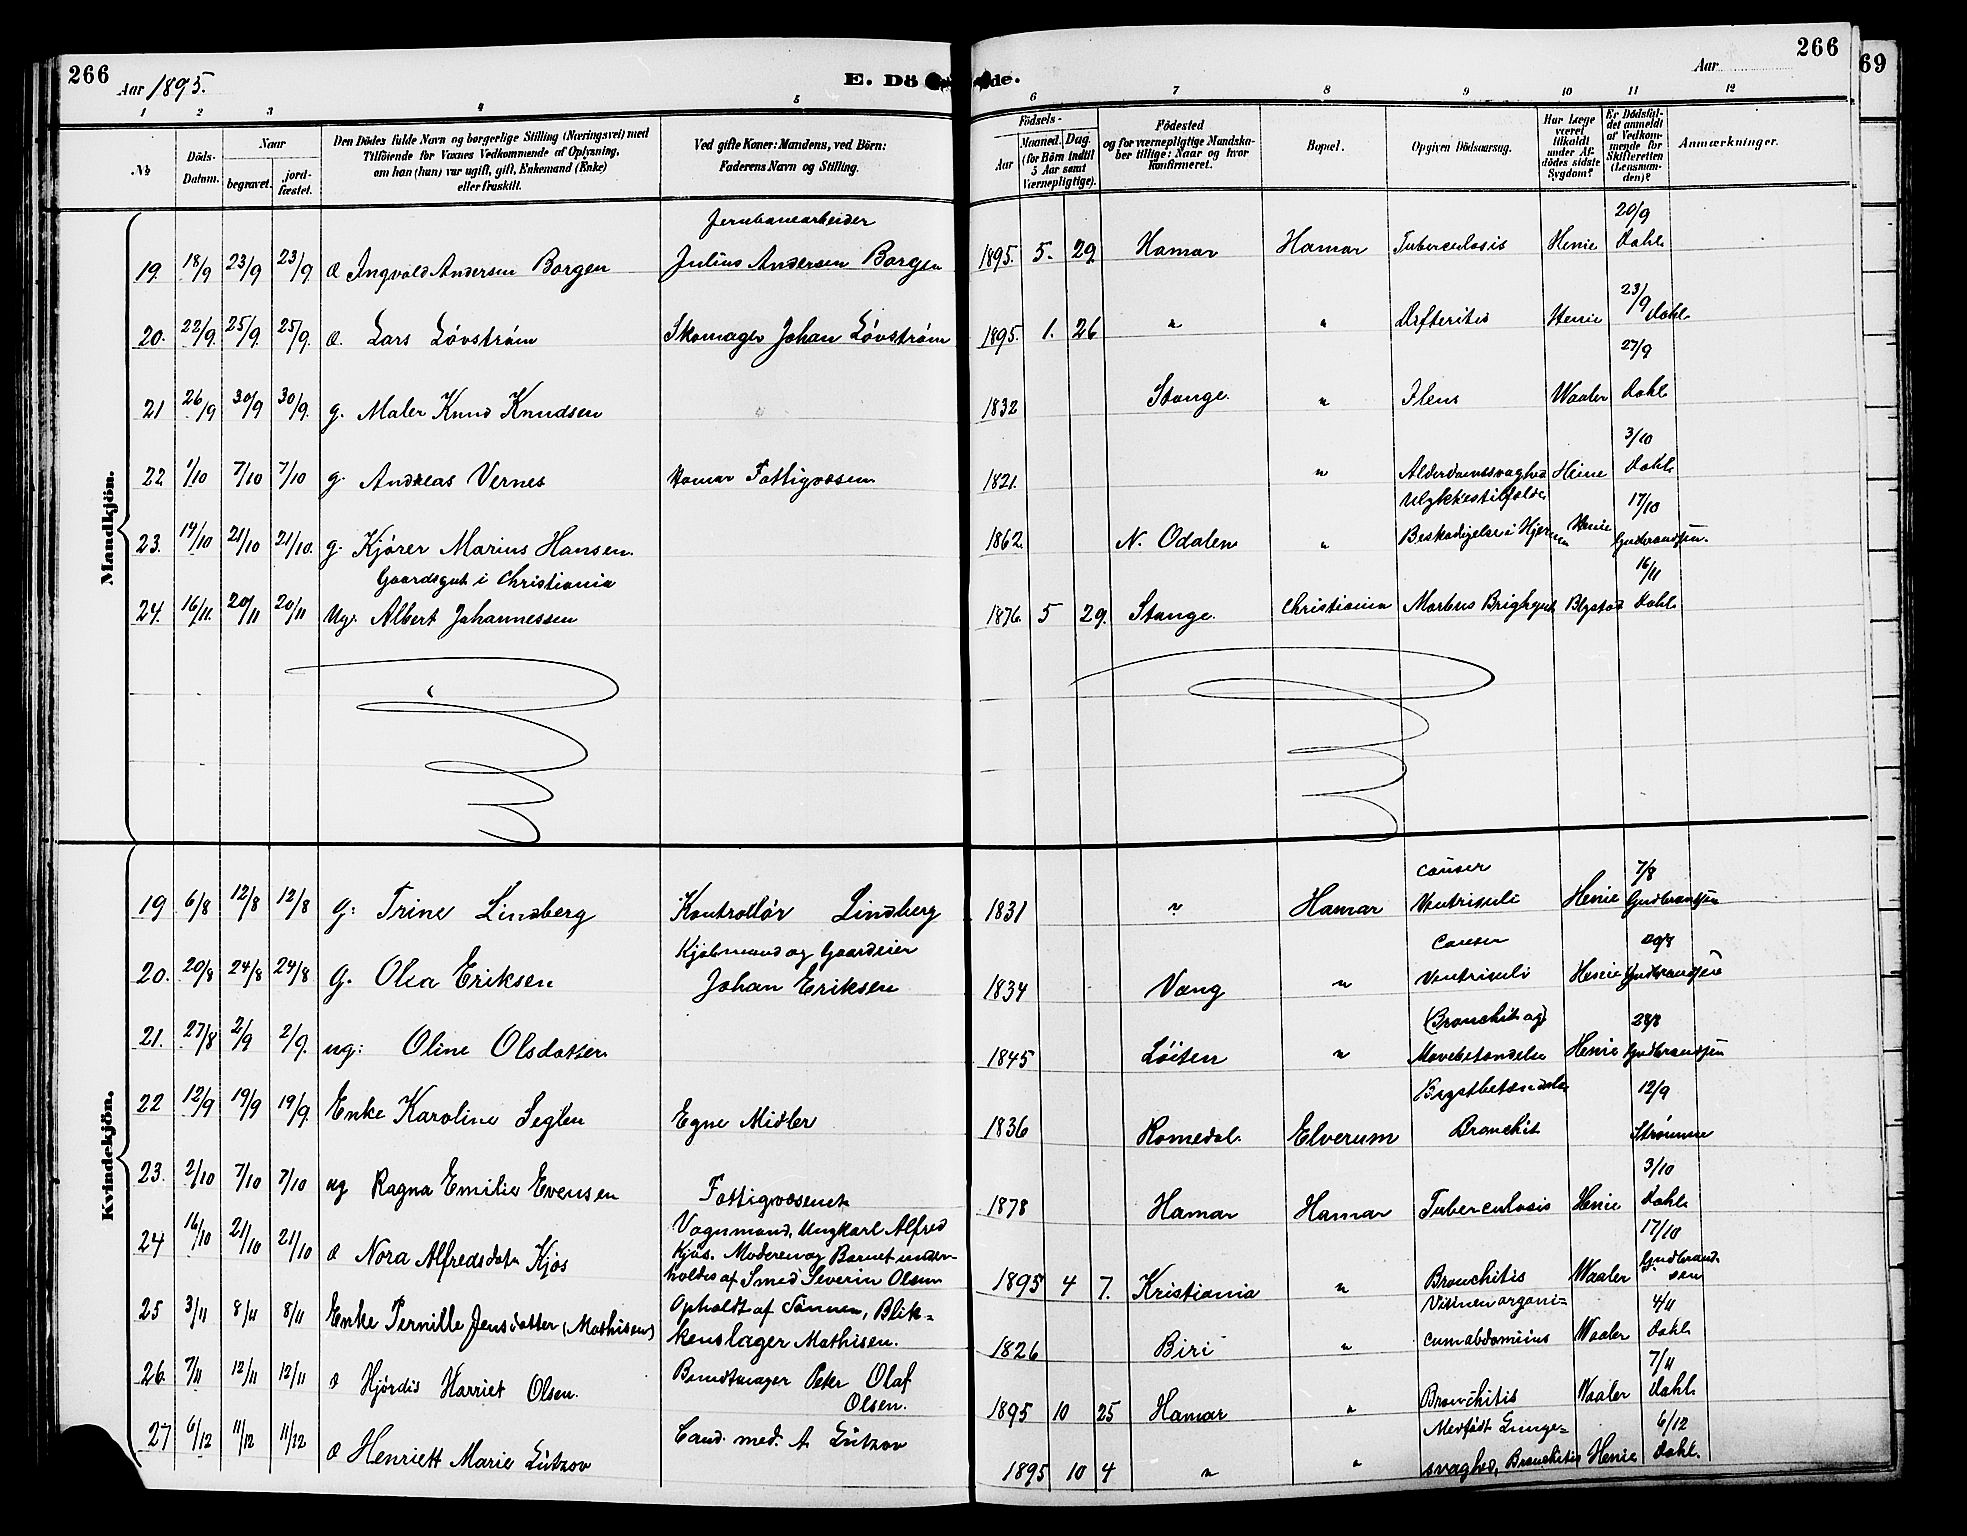 266
Aar 1895.
E. Dö de.
Aar
266
69
1 2 3 4 5 6 7 8 9 10 11 12
No
Döds-Datum.
Naar
begravet.
jord-fæstet.
Den Dödes fulde Navn og borgerlige Stilling (Næringsvei) med
Tilföiende for Voxnes Vedkommende af Oplysning,
om han (hun) var ugift, gift, Enkemand (Enke)
eller fraskilt.
Ved gifte Koner: Mandens, ved Börn:
Faderens Navn og Stilling.
Födsels-
Aar
Maaned. Dag.
(for Börn indtil
5 Aar samt
Værnepligtige).
Födested
og for værnepligtige Mandska-
ber tillige: Naar og hvor
konfirmeret.
Bopæl.
Opgiven Dödsaarsag.
Har Læge
været
tilkaldt
under Af-
dödes sidste
Sygdom?
Er Dödsfal-
det anmeldt
af Vedkom-
mende for
Skifteretten
(Lensman-
den)?
Anmærkninger.
Mandkjön.
Jernbanearbeider 20/9
19. 18/9 23/9 23/9. d Ingvald Andersen Borgen Julius Andersen Borgen 1895. 5. 29 Hamar Hamar Tuberculosis Henie Dahl
23/9
20. 22/9. 25/9. 25/9. d. Lars Løvstrøm Skomager Johan Løvstrøm 1895. 1. 26 " " Difteritis Henie Dahl
27/9
21 26/9 30/9 30/9. g. Maler Knud Knudsen 1832 Stange " Ilens Waaler Dahl
3/10
22 1/10 7/10 7/10 g. Andreas Vernes Hamar Fattigvæsen 1821. " Alderdomssvaghed Henie Dahl
Ulykkestilfælde 17/10
23. 14/10 21/10 21/10. g. Kjører Marius Hansen. 1862. N. Odalen " Beskadigelse i Hjernen Henie Gudbrandsen.
Gaardsgut i Christiania 16/11
24. 16/11. 20/11 20/11 Ug. Albert Johannessen 1876. 5 29. Stange. Christiania Morbus Brightii Dahl
Kvindekjön.
cancer 7/8
19 6/8 12/8 12/8 g: Trine Lindberg Kontrollør Lindberg 1831 " Hamar Ventriculi Henie Gudbrandsen
Kjøbmand og Gaardeier cancer 20/8
20. 20/8 24/8 24/8 g. Olea Eriksen Johan Eriksen 1834 Vang " Ventriculi Henie Gudbrandsen
(Bronchit og) 28/8
21. 27/8 2/9 2/9. ug: Oline Olsdatter 1845 Løiten " Mavebetændelse Henie Gudbrandsen
Brystbetændelse 12/9
22 12/9 19/9 19/9. Enke Karoline Seglen Egne Midler 1836 Romedal. Elverum Bronchit Strømme
3/10
23. 2/10 7/10 7/10 ug Ragna Emilie Evensen Fattigvæsenet 1878 Hamar Hamar Tuberculosis Henie Dahl
Vognmand, Ungkarl Alfred 17/10
24 16/10 21/10 21/10 d Nora Alfredsdatr Kjos Kjos. Moderen og Barnet under- Gudbrand-
holdes af Smed Severin Olsen 1895 4 7. Kristiania " Bronchitis Waaler sen
Opholdt af Sønnen, Blik- Vitium organi- 4/11
25 3/11 8/11 8/11 Enke Pernille Jensdatter (Mathisen) kenslager Mathisen. 1826 Biri " cum abdominis Waaler Dahl
7/11
26. 7/11 12/11 12/11 d Hjørdis Harriet Olsen. Bundtmager Peter Olaf
Olsen. 1895 10 25 Hamar " Bronchitis Waaler Dahl
Medfødt Lunge- 6/12
27 6/12 11/12 11/12 d Henriett Marie Lützov Cand. med. A Lützov 1895 10 4 " " svaghed, Bronchitis Henie Dahl.